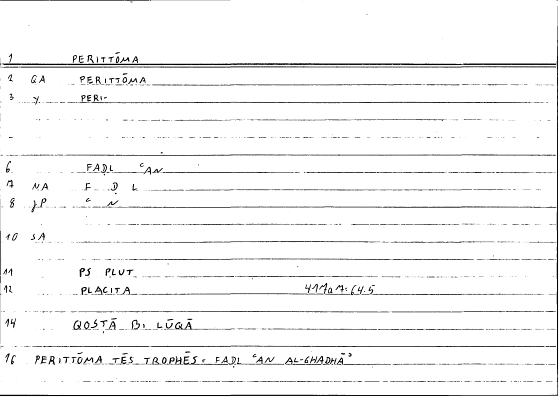 1 PERITTŌMA
2 GA PERITTŌMA
3 Y PERI-
6 FAḌL ʿAN
7 NA F Ḍ L
8 JP ʿ N
10 SA
11 PS PLUT
12 PLACITA 417a7:64.5
14 QOSṬĀ B. LŪQĀ
16 PERITTŌMA TĒS TROPHĒS = FAḌL ʿAN AL-GHADHĀʾ